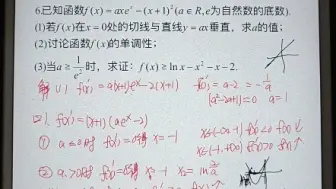 6.已知函数f(x)=axe^x-(x+1)^2(a∈R,e为自然数的底数).
(1)若f(x)在x=0处的切线与直线y=ax垂直，求a的值；
(2)讨论函数f(x)的单调性；
(3)当a≥1/e^2时，求证：f(x)≥lnx-x^2-x-2.
解(1) f'(x)=a(x+1)e^x-2(x+1) f'(0)=a-2=-1/a
(a^2-2a+1)=0 a=1
(2). f'(x)=(x+1)(ae^x-2)
① a≤0时 f'(x)=0得 x=-1 x∈(-∞,-1)
x∈(-1,+∞)
② a>0时 f'(x)=0得 x=-1 x=ln2/a